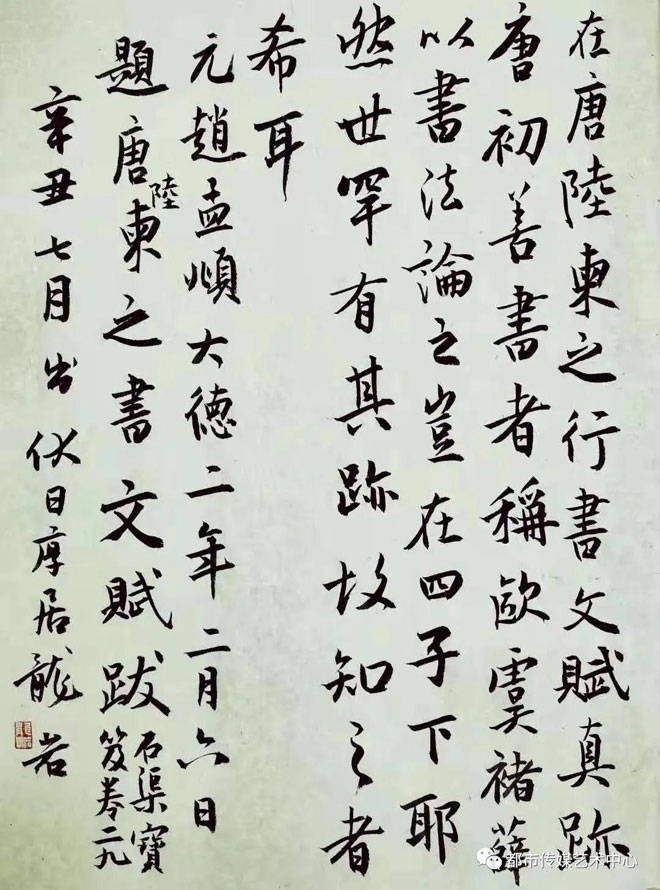 在唐陸柬之行書文賦真跡
唐初善書者稱歐虞褚薛
以書法論之豈在四子下耶
然世罕有其跡故知之者
希耳
元趙孟頫大德二年二月六日
題唐陸柬之書文賦跋石渠寶
笈卷二九
辛丑七月出伏日厚居龍岩
都市传媒艺术中心